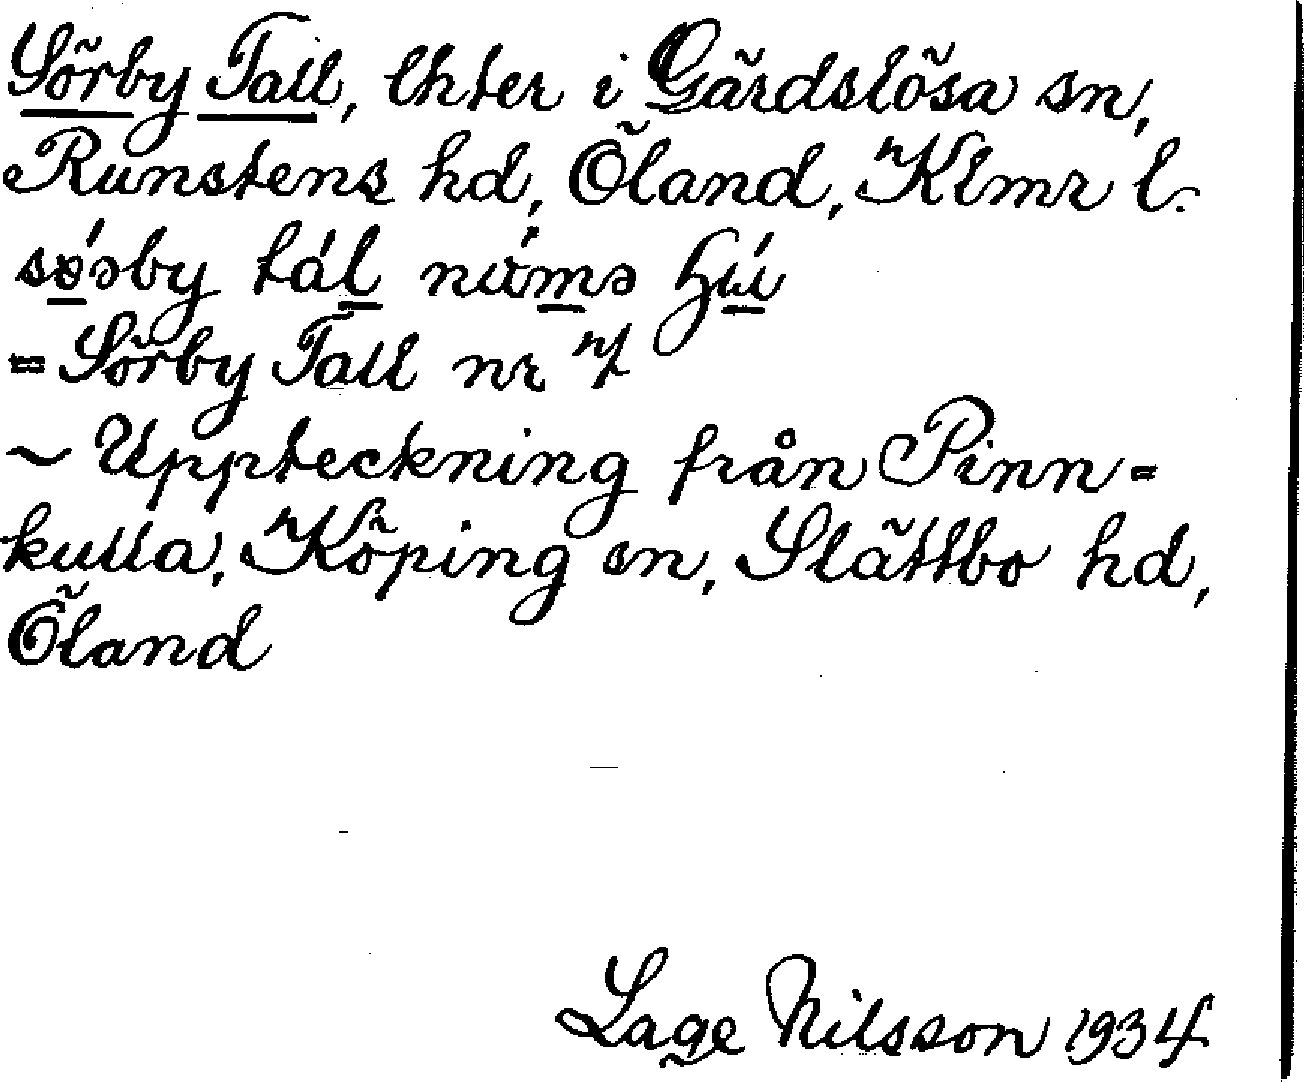 Sörby Tall, lhter i Gärdslösa sn,
Runstens hd, Öland, Klmr l.
= Sörby Tall nr 7
~ Uppteckning från Pinn=
kulla, Köping sn, Slättbo hd,
Öland
Lage Nilsson 1934